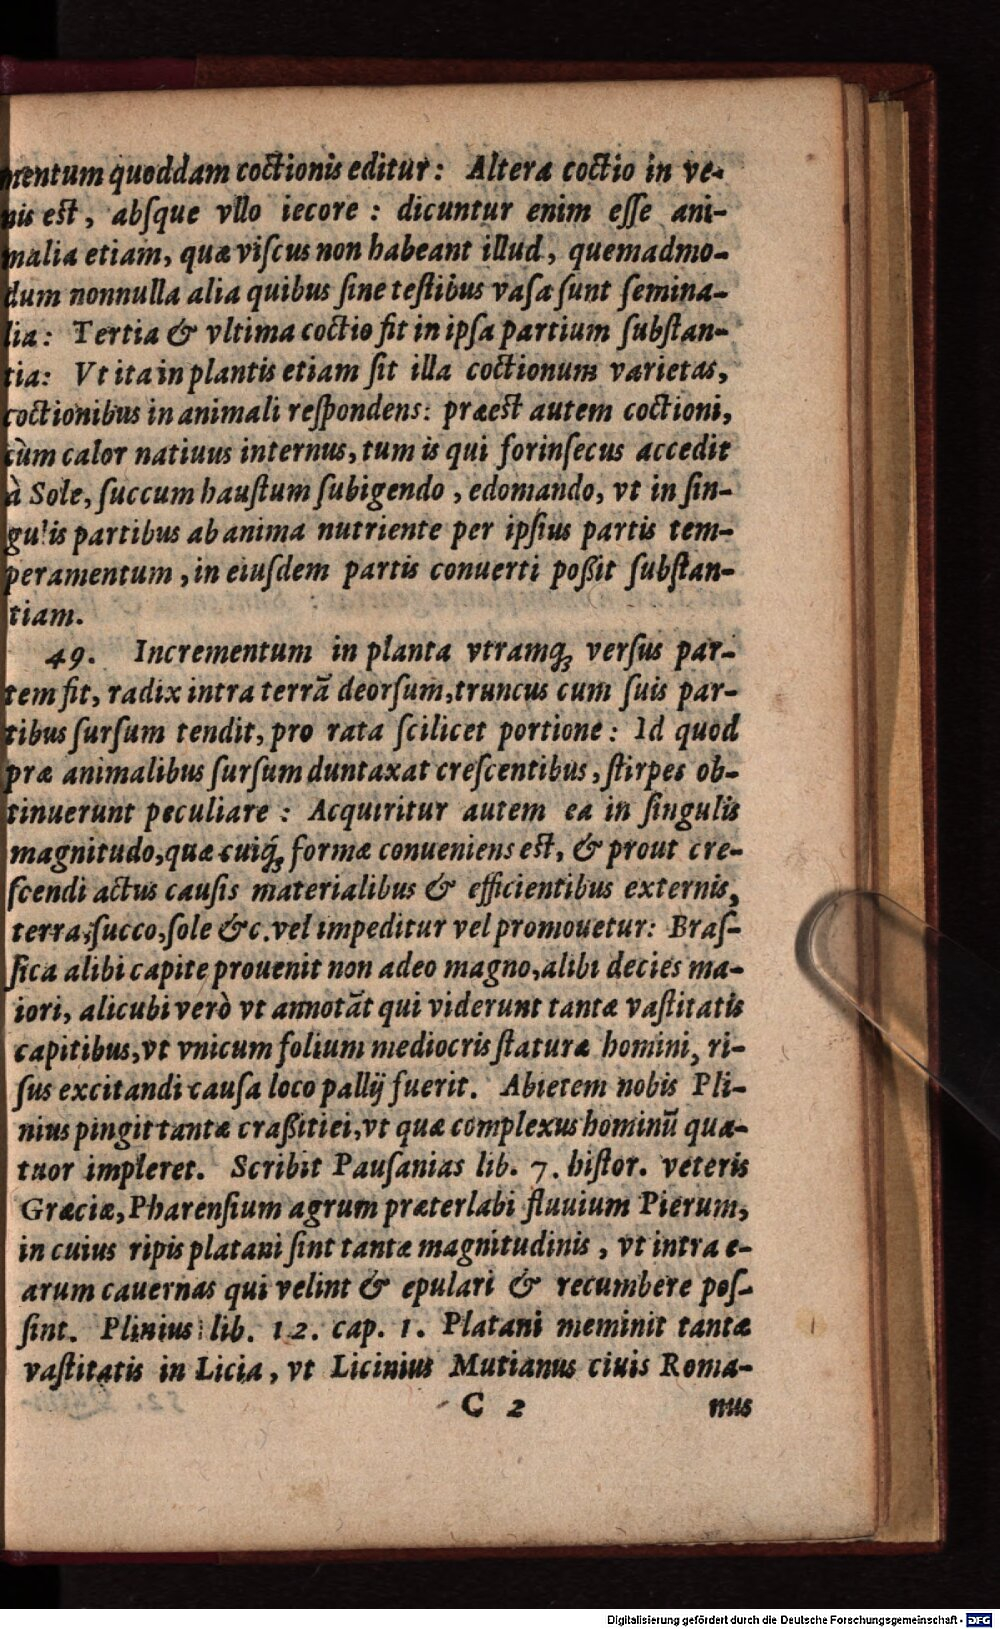 mentum quoddam coctionis editur: Altera coctio in ve-
nis est, absque vllo iecore: dicuntur enim esse ani-
malia etiam, quæ viſcus non habeant illud, quemadmo-
dum nonnulla alia quibus ſine teſtibus vaſa ſunt ſemina-
lia: Tertia & vltima coctio fit in ipſa partium ſubſtan-
tia: Vt ita in plantis etiam ſit illa coctionum varietas,
coctionibus in animali reſpondens: præest autem coctioni,
cùm calor natiuus internus, tum is qui forinſecus accedit
à Sole, ſuccum hauſtum ſubigendo, edomando, vt in ſin-
gulis partibus ab anima nutriente per ipſius partis tem-
peramentum, in eiuſdem partis conuerti poßit ſubſtan-
tiam.
49. Incrementum in planta vtramq; verſus par-
tem fit, radix intra terrā deorſum, truncus cum ſuis par-
tibus ſurſum tendit, pro rata ſcilicet portione: Id quod
præ animalibus ſurſum duntaxat creſcentibus, ſtirpes ob-
tinuerunt peculiare: Acquiritur autem ea in ſingulis
magnitudo, quæ cuiq; formæ conueniens est, & prout cre-
ſcendi actus cauſis materialibus & efficientibus externis,
terra, ſucco, ſole &c. vel impeditur vel promouetur: Braſ-
ſica alibi capite prouenit non adeo magno, alibi decies ma-
iori, alicubi verò vt annotāt qui viderunt tantæ vaſtitatis
capitibus, vt vnicum folium mediocris ſtaturæ homini, ri-
ſus excitandi cauſa loco pallij fuerit. Abietem nobis Pli-
nius pingit tantæ craßitiei, vt quæ complexus hominū qua-
tuor impleret. Scribit Pauſanias lib. 7. hiſtor. veteris
Græciæ, Pharenſium agrum præterlabi fluuium Pierum,
in cuius ripis platani ſint tantæ magnitudinis, vt intra e-
arum cauernas qui velint & epulari & recumbere poſ-
ſint. Plinius lib. 12. cap. 1. Platani meminit tantæ
vaſtitatis in Licia, vt Licinius Mutianus ciuis Roma-
C 2 nus
Digitalisierung gefördert durch die Deutsche Forschungsgemeinschaft - DFG